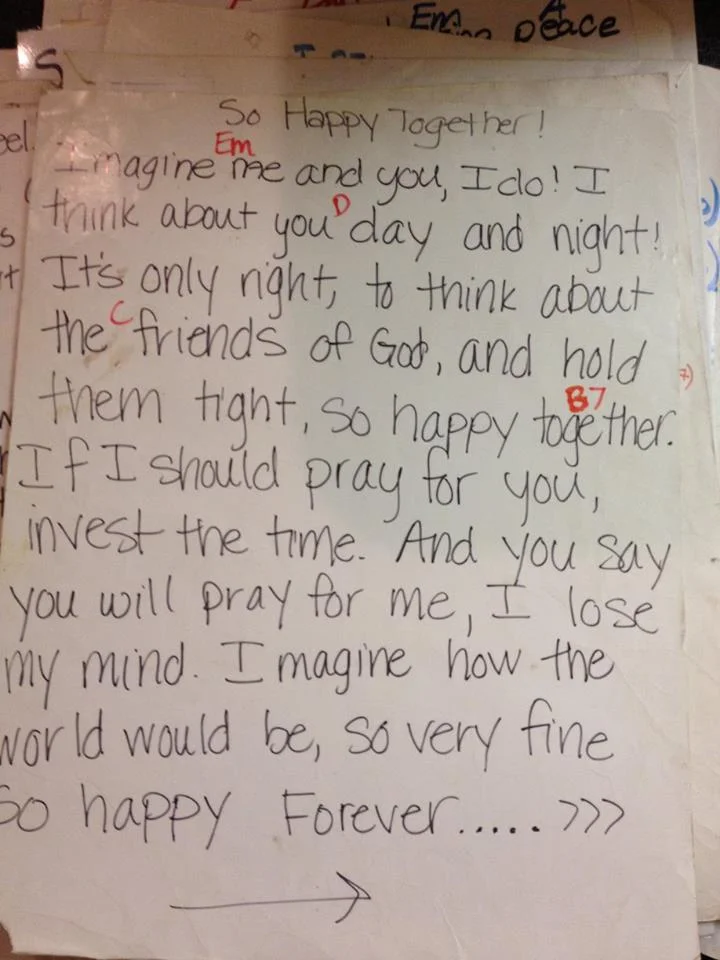 Em
A
peace
So Happy Together!
Em
Imagine me and you, I do! I
D
think about you day and night!
It's only right, to think about
C
the friends of God, and hold
7)
B7
them tight, so happy together.
If I should pray for you,
invest the time. And you say
you will pray for me, I lose
my mind. Imagine how the
world would be, so very fine
So happy Forever..... >>>